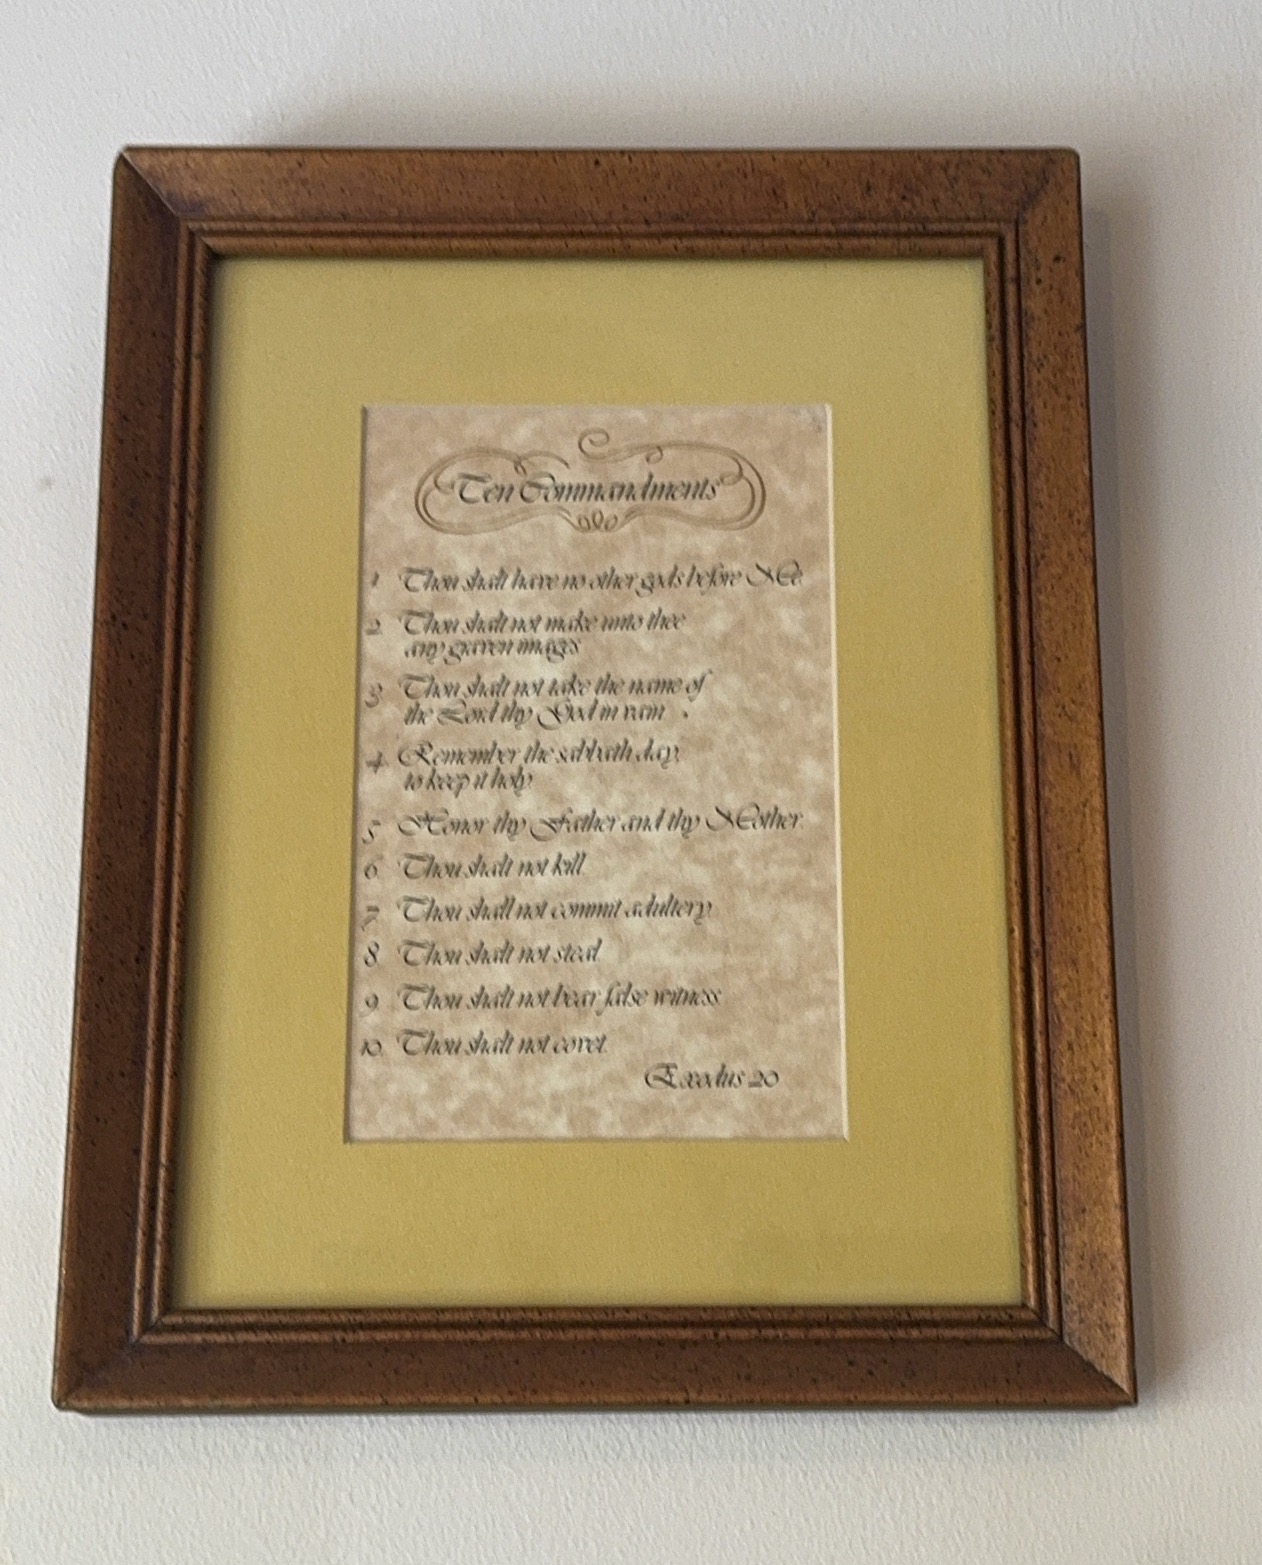 Ten Commandments
1 Thou shalt have no other gods before Me.
2. Thou shalt not make unto thee
any graven images
3 Thou shalt not take the name of
the Lord thy God in vain
4. Remember the sabbath day,
to keep it holy
5 Honor thy Father and thy Mother.
6. Thou shalt not kill
7. Thou shall not commit adultery.
8. Thou shalt not steal
9 Thou shalt not bear false witness
10. Thou shalt not covet.
Exodus 20